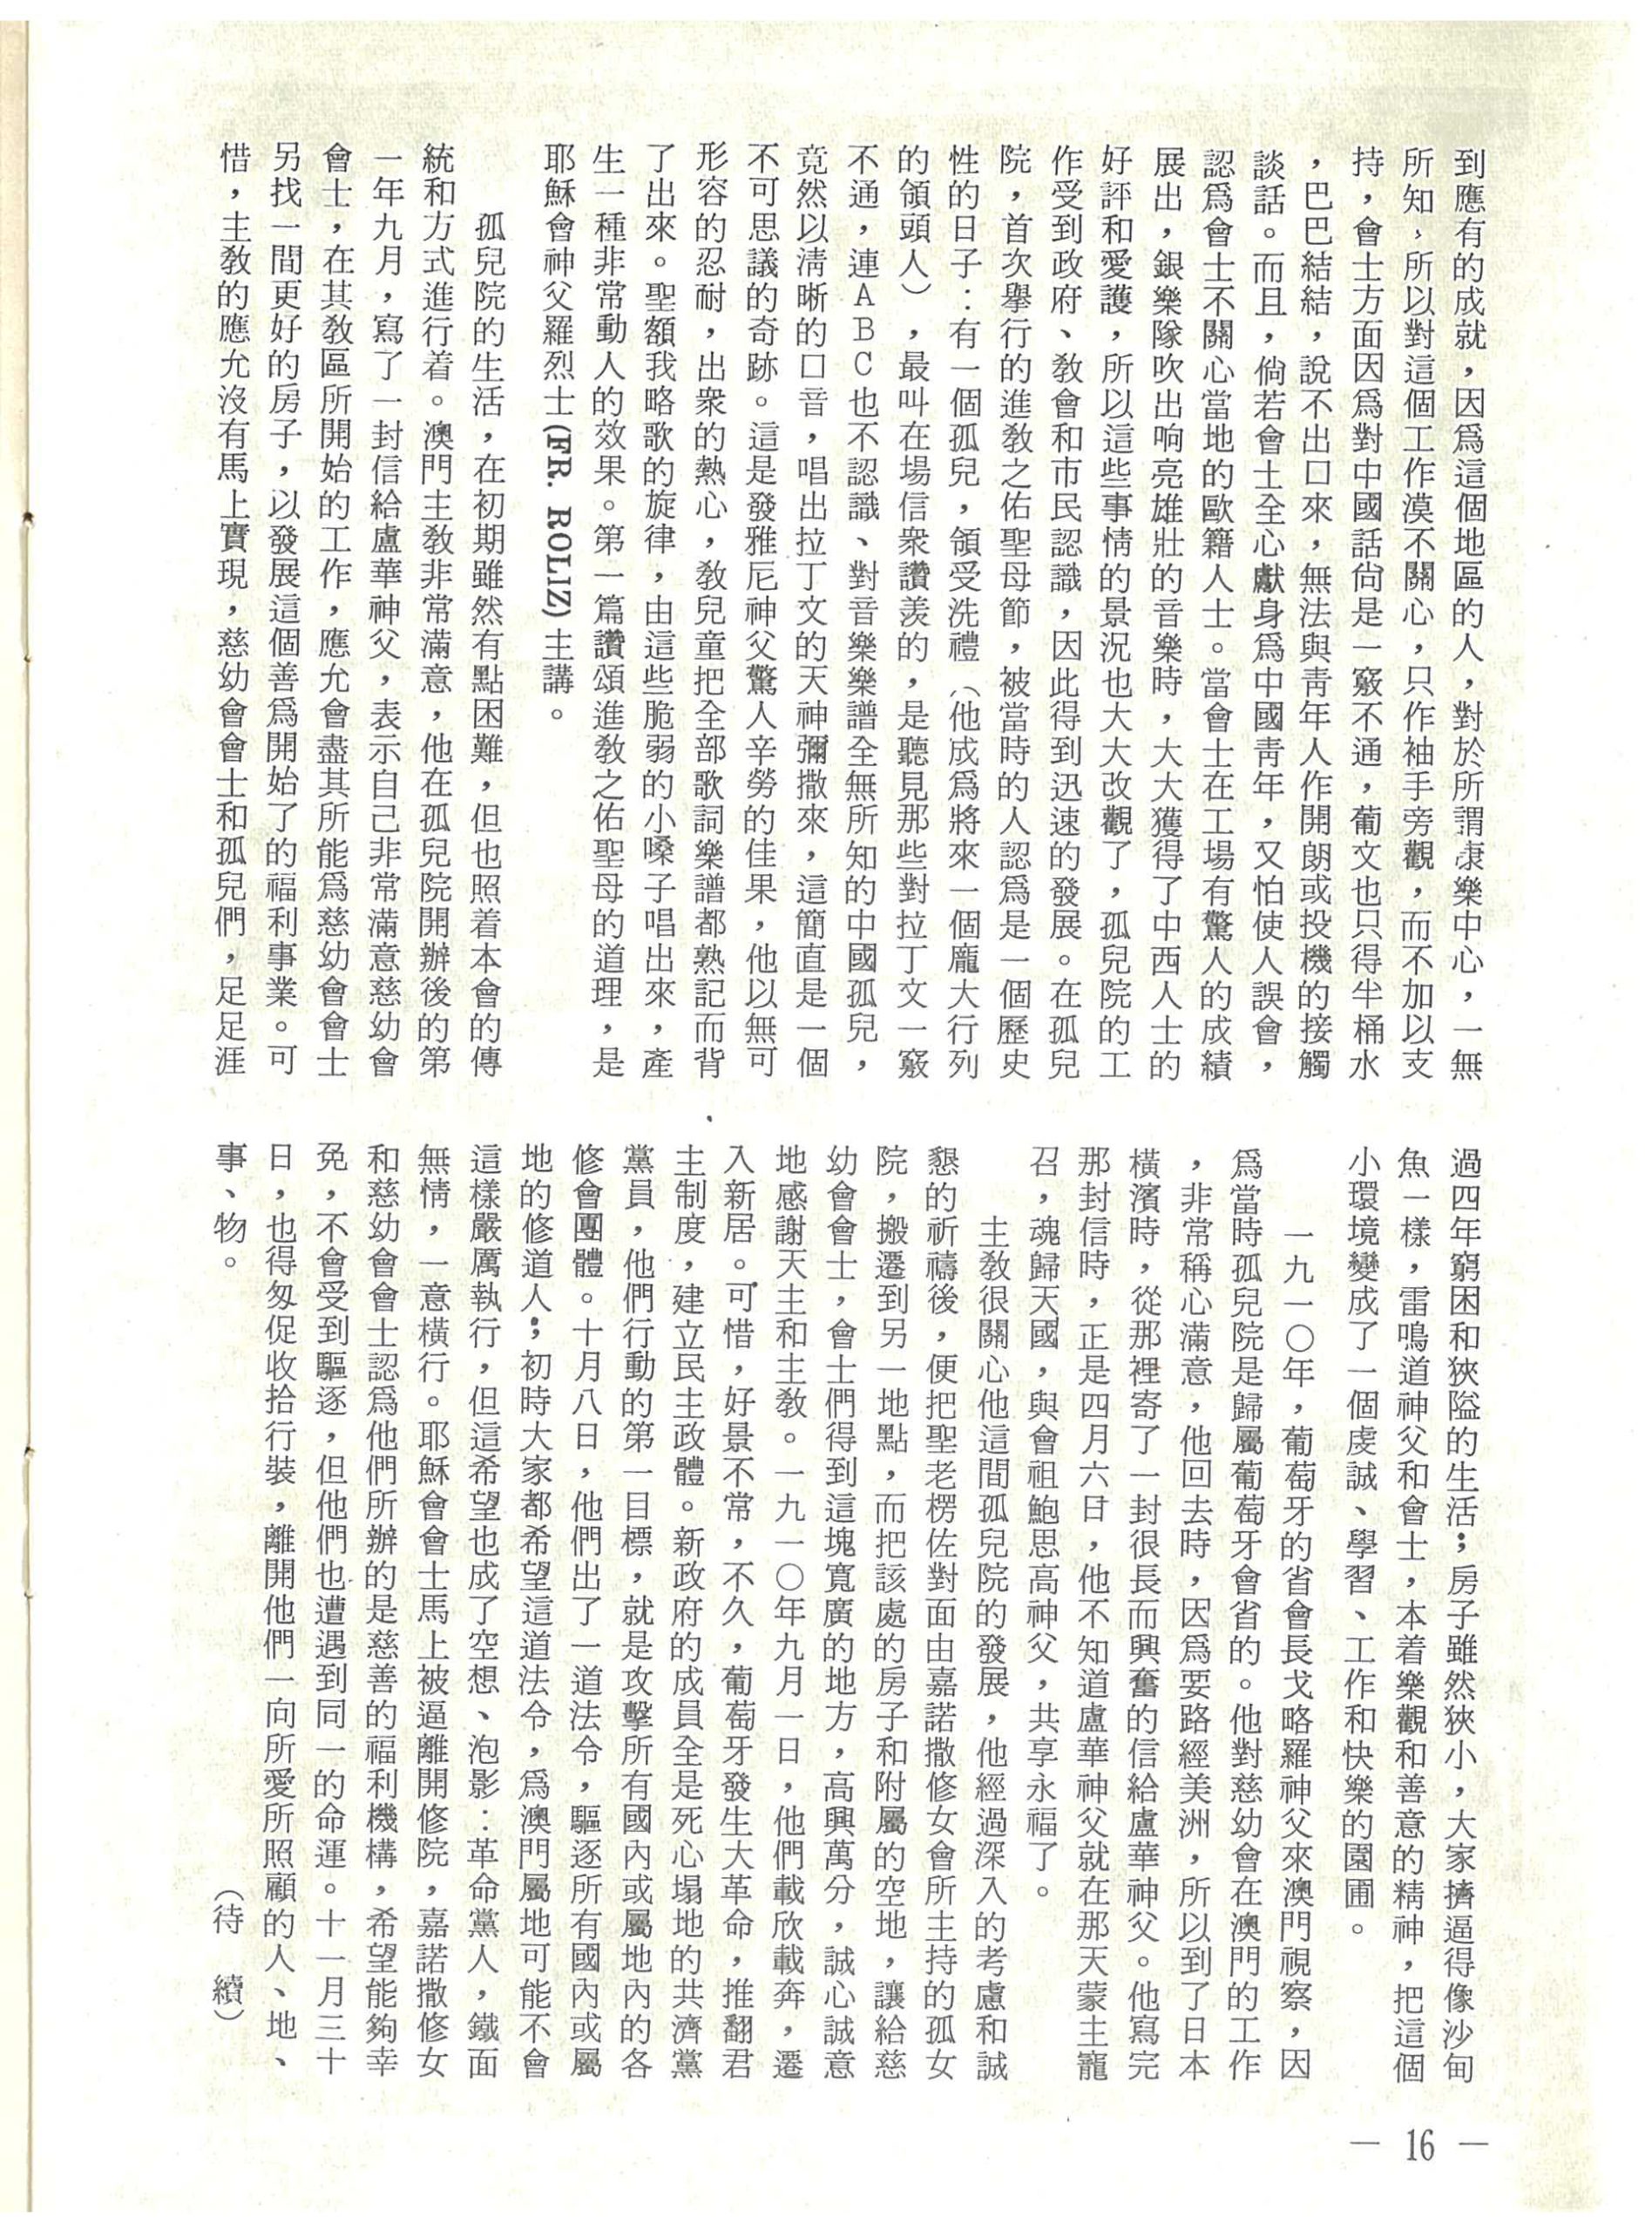 到應有的成就，因爲這個地區的人，對於所謂康樂中心，一無
所知，所以對這個工作漠不關心，只作袖手旁觀，而不加以支
持，會士方面因爲對中國話尙是一竅不通，葡文也只得半桶水
，巴巴結結，說不出口來，無法與靑年人作開朗或投機的接觸
談話。而且，倘若會士全心獻身爲中國靑年，又怕使人誤會，
認爲會士不關心當地的歐籍人士。當會士在工場有驚人的成績
展出，銀樂隊吹出响亮雄壯的音樂時，大大獲得了中西人士的
好評和愛護，所以這些事情的景況也大大改觀了，孤兒院的工
作受到政府、敎會和市民認識，因此得到迅速的發展。在孤兒
院，首次舉行的進敎之佑聖母節，被當時的人認爲是一個歷史
性的日子：有一個孤兒，領受洗禮（他成爲將來一個龐大行列
的領頭人），最叫在場信衆讚羨的，是聽見那些對拉丁文一竅
不通，連ＡＢＣ也不認識、對音樂樂譜全無所知的中國孤兒，
竟然以淸晰的口音，唱出拉丁文的天神彌撒來，這簡直是一個
不可思議的奇跡。這是發雅尼神父驚人辛勞的佳果，他以無可
形容的忍耐，出衆的熱心，敎兒童把全部歌詞樂譜都熟記而背
了出來。聖額我略歌的旋律，由這些脆弱的小嗓子唱出來，產
生一種非常動人的效果。第一篇讚頌進敎之佑聖母的道理，是
耶穌會神父羅烈士(FR. ROLIZ)主講。
孤兒院的生活，在初期雖然有點困難，但也照着本會的傳
統和方式進行着。澳門主敎非常滿意，他在孤兒院開辦後的第
一年九月，寫了一封信給盧華神父，表示自己非常滿意慈幼會
會士，在其敎區所開始的工作，應允會盡其所能爲慈幼會會士
另找一間更好的房子，以發展這個善爲開始了的福利事業。可
惜，主敎的應允沒有馬上實現，慈幼會會士和孤兒們，足足涯
過四年窮困和狹隘的生活；房子雖然狹小，大家擠逼得像沙甸
魚一樣，雷鳴道神父和會士，本着樂觀和善意的精神，把這個
小環境變成了一個虔誠、學習、工作和快樂的園圃。
一九一〇年，葡萄牙的省會長戈略羅神父來澳門視察，因
爲當時孤兒院是歸屬葡萄牙會省的。他對慈幼會在澳門的工作
，非常稱心滿意，他回去時，因爲要路經美洲，所以到了日本
橫濱時，從那裡寄了一封很長而興奮的信給盧華神父。他寫完
那封信時，正是四月六日，他不知道盧華神父就在那天蒙主寵
召，魂歸天國，與會祖鮑思高神父，共享永福了。
主敎很關心他這間孤兒院的發展，他經過深入的考慮和誠
懇的祈禱後，便把聖老楞佐對面由嘉諾撒修女會所主持的孤女
院，搬遷到另一地點，而把該處的房子和附屬的空地，讓給慈
幼會會士，會士們得到這塊寬廣的地方，高興萬分，誠心誠意
地感謝天主和主敎。一九一〇年九月一日，他們載欣載奔，遷
入新居。可惜，好景不常，不久，葡萄牙發生大革命，推翻君
主制度，建立民主政體。新政府的成員全是死心塌地的共濟黨
黨員，他們行動的第一目標，就是攻擊所有國內或屬地內的各
修會團體。十月八日，他們出了一道法令，驅逐所有國內或屬
地的修道人；初時大家都希望這道法令，爲澳門屬地可能不會
這樣嚴厲執行，但這希望也成了空想、泡影：革命黨人，鐵面
無情，一意橫行。耶穌會會士馬上被逼離開修院，嘉諾撒修女
和慈幼會會士認爲他們所辦的是慈善的福利機構，希望能夠幸
免，不會受到驅逐，但他們也遭遇到同一的命運。十一月三十
日，也得匆促收拾行裝，離開他們一向所愛所照顧的人、地、
事、物。
（待　續）
— 16 —